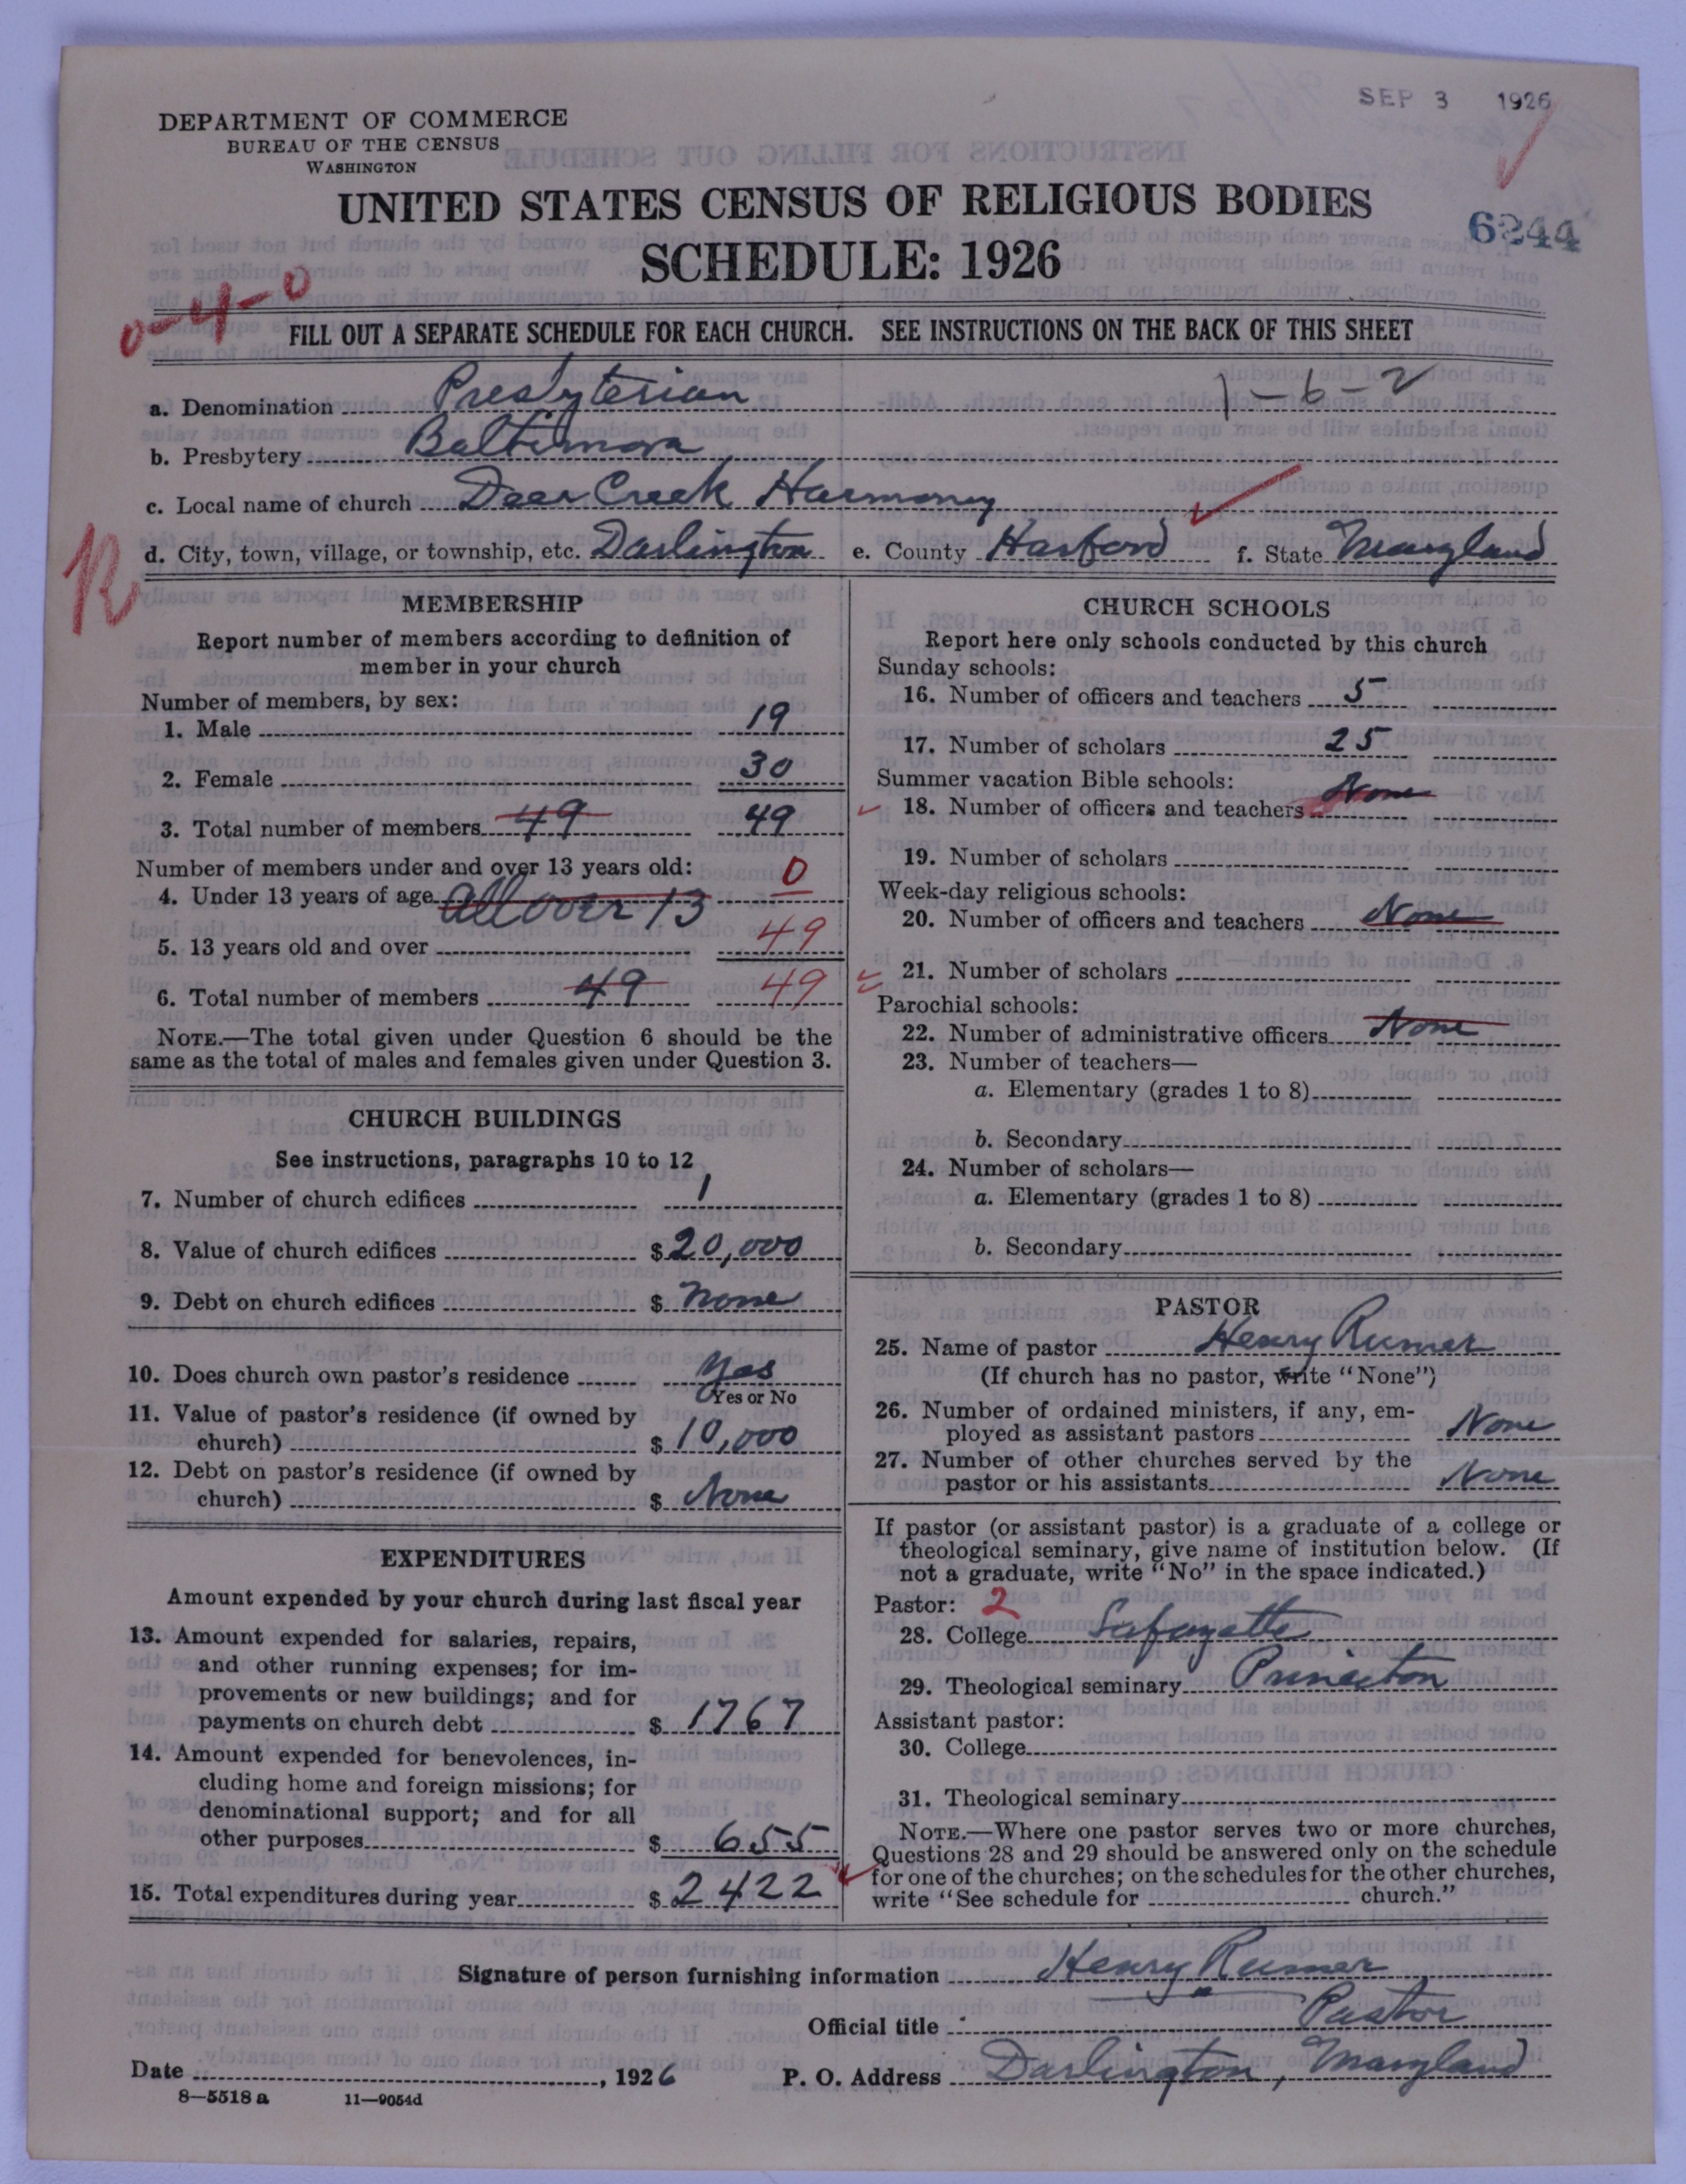 SEP 3 1926
DEPARTMENT OF COMMERCE
BUREAU OF THE CENSUS
WASHINGTON
UNITED STATES CENSUS OF RELIGIOUS BODIES
6244
SCHEDULE: 1926
0-4-0
FILL OUT A SEPARATE SCHEDULE FOR EACH CHURCH. SEE INSTRUCTIONS ON THE BACK OF THIS SHEET
a. Denomination Presbyterian 1-6-2
b. Presbytery Baltimore
c. Local name of church Deer Creek Harmony
d. City, town, village, or township, etc. Darlington e. County Harford f. State Maryland
MEMBERSHIP
Report number of members according to definition of
member in your church
Number of members, by sex:
1. Male 19
2. Female 30
3. Total number of members 49 49
Number of members under and over 13 years old:
4. Under 13 years of age all over 13 0
5. 13 years old and over 49
6. Total number of members 49 49
NOTE.—The total given under Question 6 should be the
same as the total of males and females given under Question 3.
CHURCH BUILDINGS
See instructions, paragraphs 10 to 12
7. Number of church edifices 1
8. Value of church edifices $ 20,000
9. Debt on church edifices $ none
10. Does church own pastor's residence yes
Yes or No
11. Value of pastor's residence (if owned by
church) $ 10,000
12. Debt on pastor's residence (if owned by
church) $ None
EXPENDITURES
Amount expended by your church during last fiscal year
13. Amount expended for salaries, repairs,
and other running expenses; for im-
provements or new buildings; and for
payments on church debt $ 1767
14. Amount expended for benevolences, in-
cluding home and foreign missions; for
denominational support; and for all
other purposes $ 655
15. Total expenditures during year $ 2422
CHURCH SCHOOLS
Report here only schools conducted by this church
Sunday schools:
16. Number of officers and teachers 5
17. Number of scholars 25
Summer vacation Bible schools:
18. Number of officers and teachers None
19. Number of scholars
Week-day religious schools:
20. Number of officers and teachers None
21. Number of scholars
Parochial schools:
22. Number of administrative officers None
23. Number of teachers—
a. Elementary (grades 1 to 8)
b. Secondary
24. Number of scholars—
a. Elementary (grades 1 to 8)
b. Secondary
PASTOR
25. Name of pastor Henry Rumer
(If church has no pastor, write "None")
26. Number of ordained ministers, if any, em-
ployed as assistant pastors None
27. Number of other churches served by the
pastor or his assistants None
If pastor (or assistant pastor) is a graduate of a college or
theological seminary, give name of institution below. (If
not a graduate, write "No" in the space indicated.)
Pastor: 2
28. College Lafayette
29. Theological seminary Princeton
Assistant pastor:
30. College
31. Theological seminary
NOTE.—Where one pastor serves two or more churches,
Questions 28 and 29 should be answered only on the schedule
for one of the churches; on the schedules for the other churches,
write "See schedule for church."
Signature of person furnishing information Henry Rumer
Official title Pastor
Date , 1926 P. O. Address Darlington, Maryland
8—5518 a 11—9054d